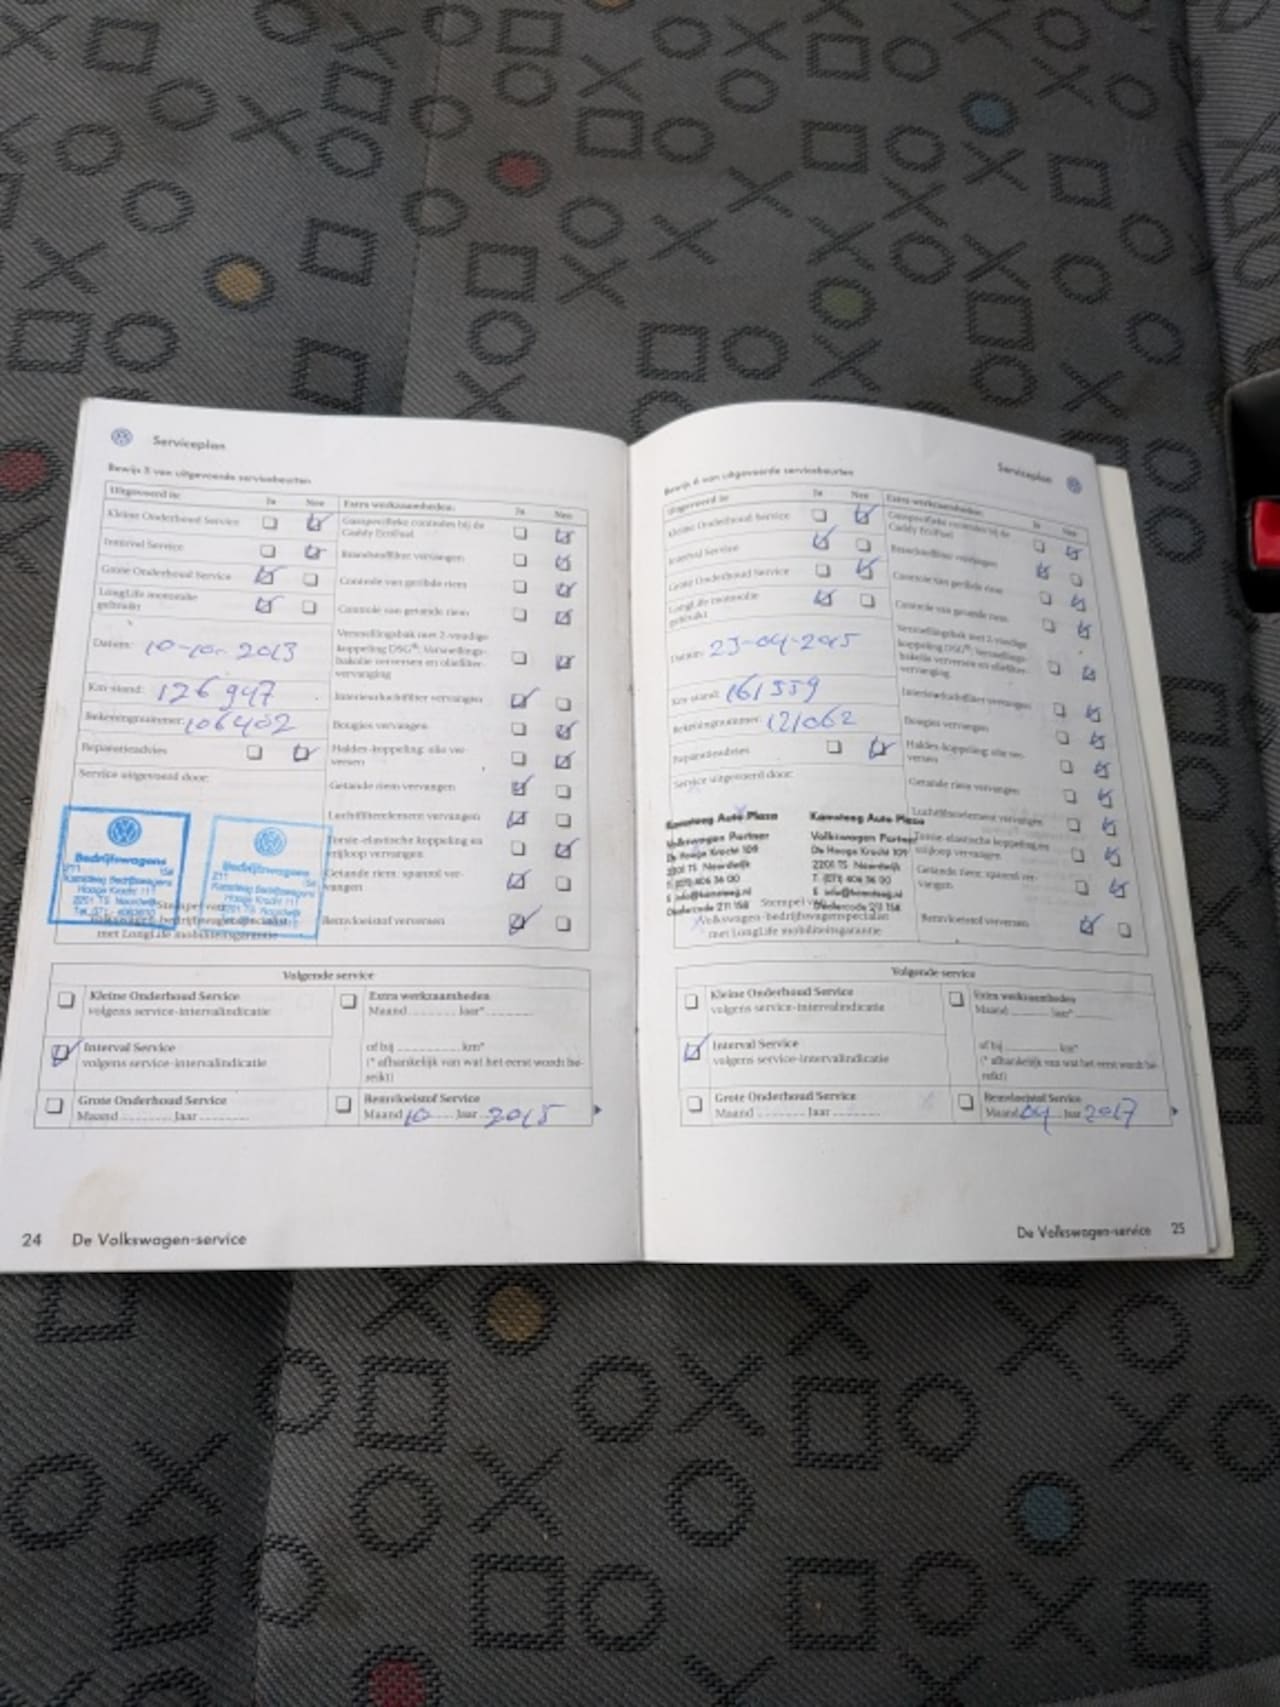 Serviceplan
Bewijs 5 van uitgevoerde servicebeurten
Uitgevoerd is:
Ja
Nee
Kleine Onderhoud Service
Interval Service
Grote Onderhoud Service
LongLife motorolie
gebruikt
Datum: 10-10-2013
Km-stand: 126947
Rekeningnummer: 106402
Reparatieadvies
Service uitgevoerd door:
Bedrijfswagens
211
158
Kamsteeg Bedrijfswagens
Hooge Kracht 111
2201 TS Noordwijk
Bedrijfswagens
211
158
Kamsteeg Bedrijfswagens
Hooge Kracht 111
2201 TS Noordwijk
Stempel van
Volkswagen-bedrijfswagenspecialist
met LongLife mobiliteitsgarantie
Extra werkzaamheden:
Ja
Nee
Gasspecifieke controles bij de
Caddy EcoFuel
Brandstoffilter vervangen
Controle van geribde riem
Controle van getande riem
Versnellingsbak met 2-voudige
koppeling DSG®: Versnellings-
bakolie verversen en oliefilter-
vervanging
Interieurluchtfilter vervangen
Bougies vervangen
Haldex-koppeling: olie ver-
versen
Getande riem vervangen
Luchtfilterelement vervangen
Torsie-elastische koppeling en
vrijloop vervangen
Getande riem: spanrol ver-
vangen
Remvloeistof verversen
Volgende service
Kleine Onderhoud Service
volgens service-intervalindicatie
Extra werkzaamheden
Maand ............ Jaar* ............
Interval Service
volgens service-intervalindicatie
of bij ................ km*
(* afhankelijk van wat het eerst wordt be-
reikt)
Grote Onderhoud Service
Maand ............ Jaar ............
Remvloeistof Service
Maand 10 Jaar 2015
24 De Volkswagen-service
Serviceplan
Bewijs 6 van uitgevoerde servicebeurten
Uitgevoerd is:
Ja
Nee
Kleine Onderhoud Service
Interval Service
Grote Onderhoud Service
LongLife motorolie
gebruikt
Datum: 23-04-2015
Km-stand: 161559
Rekeningnummer: 121062
Reparatieadvies
Service uitgevoerd door:
Kamsteeg Auto Plaza
Volkswagen Partner
De Hooge Kracht 109
2201 TS Noordwijk
T. (071) 406 36 00
E info@kamsteeg.nl
Dealercode 211 158
Kamsteeg Auto Plaza
Volkswagen Partner
De Hooge Kracht 109
2201 TS Noordwijk
T. (071) 406 36 00
E info@kamsteeg.nl
Dealercode 211 158
Stempel van
Volkswagen-bedrijfswagenspecialist
met LongLife mobiliteitsgarantie
Extra werkzaamheden:
Ja
Nee
Gasspecifieke controles bij de
Caddy EcoFuel
Brandstoffilter vervangen
Controle van geribde riem
Controle van getande riem
Versnellingsbak met 2-voudige
koppeling DSG®: Versnellings-
bakolie verversen en oliefilter-
vervanging
Interieurluchtfilter vervangen
Bougies vervangen
Haldex-koppeling: olie ver-
versen
Getande riem vervangen
Luchtfilterelement vervangen
Torsie-elastische koppeling en
vrijloop vervangen
Getande riem: spanrol ver-
vangen
Remvloeistof verversen
Volgende service
Kleine Onderhoud Service
volgens service-intervalindicatie
Extra werkzaamheden
Maand ............ Jaar* ............
Interval Service
volgens service-intervalindicatie
of bij ................ km*
(* afhankelijk van wat het eerst wordt be-
reikt)
Grote Onderhoud Service
Maand ............ Jaar ............
Remvloeistof Service
Maand 04 Jaar 2017
De Volkswagen-service 25